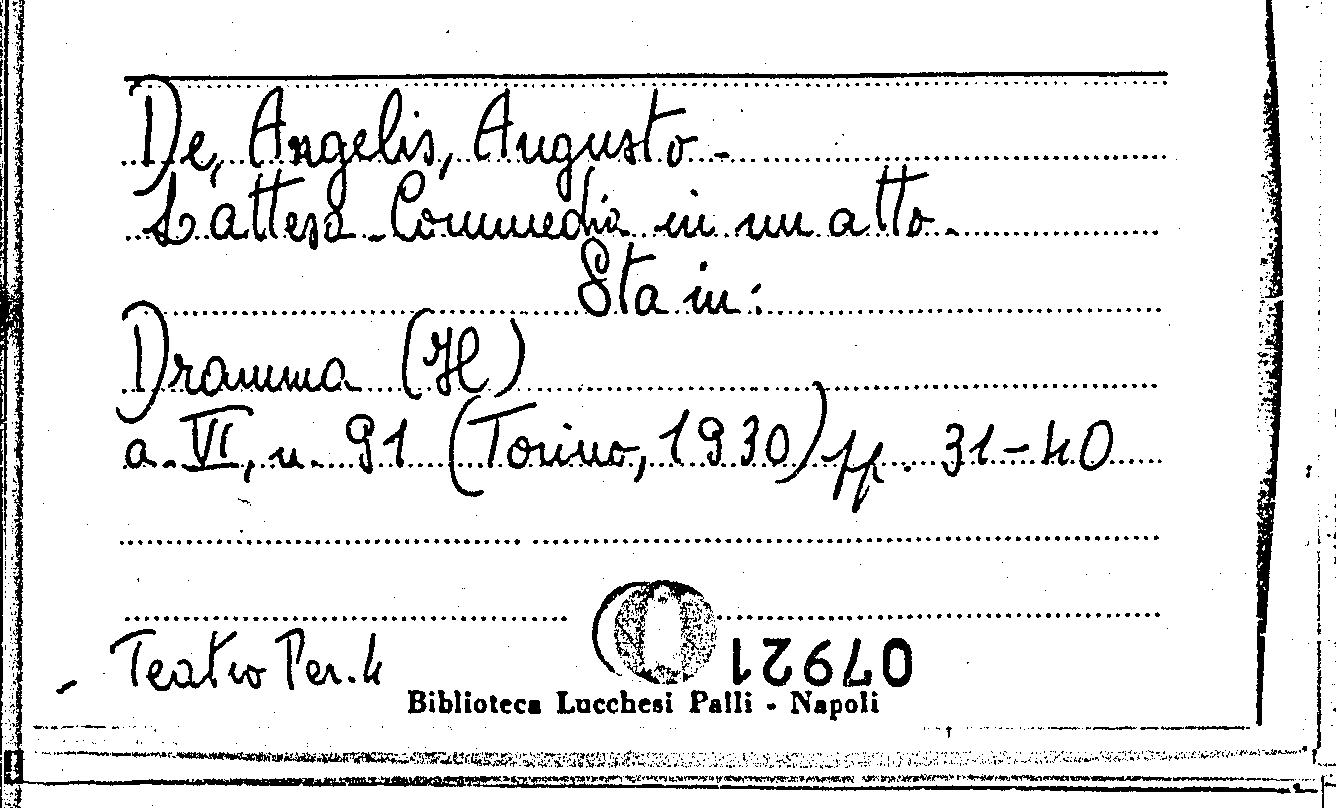 De, Angelis, Augusto -
L'attesa - Commedia in un atto -
Sta in:
Dramma (Il)
a. VI, n. 91 (Torino, 1930) pp. 31-40
- Teatro Per. 4
07921
Biblioteca Lucchesi Palli - Napoli